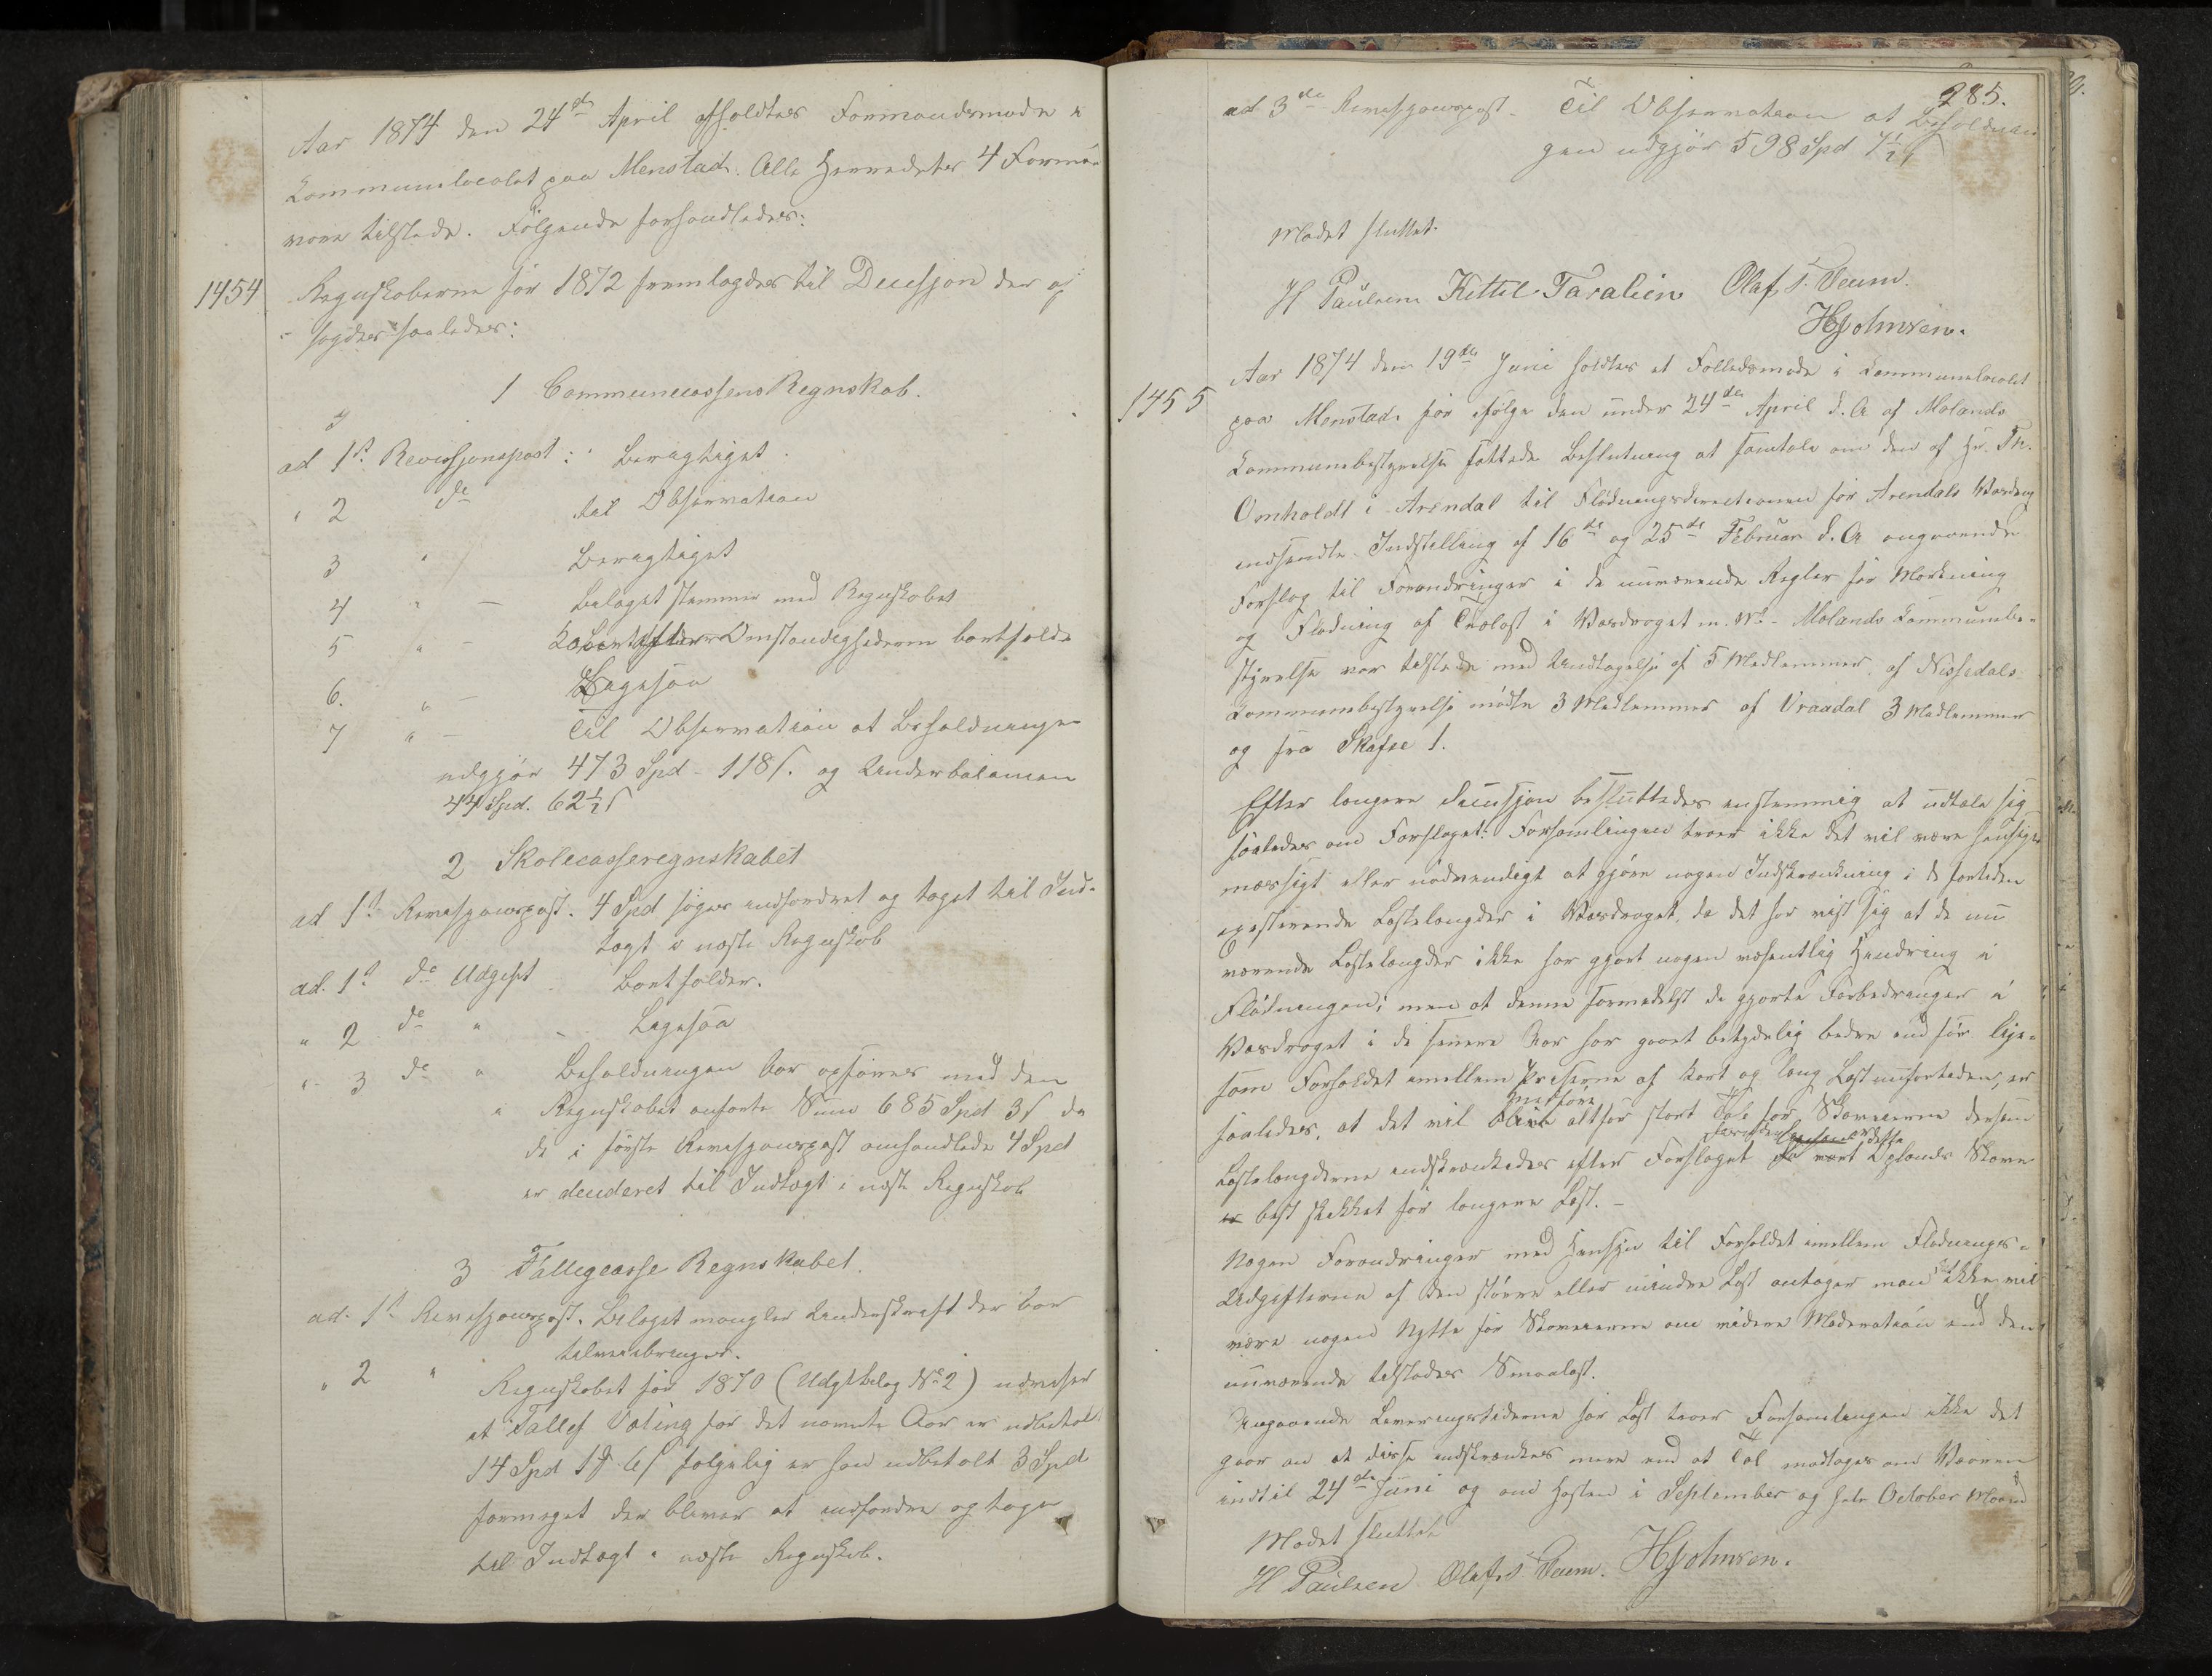 Aar 1874 den 24de April afholdtes Formandsmøde i
Kommunelocalet paa Menstad. Alle Herredets 4 Formæn
vare tilstede. Følgende forhandledes:
1454 Regnskaberne for 1872 fremlagdes til Decisjon der af
sagdes saaledes:
1 Communecassens Regnskab.
ad 1st Revisjonspost: Berigtiget.
" 2 do til Observation
3 " Berigtiget
4 " – Bilaget stemmer med Regnskabet
5 " – Omstændighederne bortfalde
6. " – Ligesaa
7 " – Til Observation at Beholdningen
udgjør 473 Spd – 118 s. og Underbalancen
44 Spd. 62½ s
2 Skolecasseregnskabet
ad 1st Revisjonspost. 4 Spd søges indfordret og taget til Ind-
tægt i næste Regnskab
ad. 1st do Udgift – Bortfalder.
" 2 do " – Ligesaa
" 3 do " Beholdningen bør opføres med den
i Regnskabet anførte Sum 685 Spd 3 s da
de i første Revisjonspost omhandlede 4 Spd
er decideret til Indtægt i næste Regnskab
3 Fattigcasse Regnskabet.
ad. 1st Revisjonspost. Bilaget mangler Underskrift der bør
tilveiebringes.
" 2 " Regnskabet for 1870 (Udgtbilag No 2) udviser
at Tallef Valing for det nævnte Aar er udbetalt
14 Spd 6 s følgelig er han udbetalt 3 Spd
formeget der bliver at indfordre og tage
til Indtægt i næste Regnskab.
285.
ad 3die Revisjonspost – Til Observation at Beholdnin
gen udgjør 598 Spd
Mødet sluttet.
H Paulsen Kittil Taralien Olaf T. Veum.
HJohnsen.
1455 Aar 1874 den 19de Juni holdtes et Fælledsmøde i Kommunelocalet
paa Menstad for ifølge den under 24de April d. A af Molands
Kommunebestyrelse fattede Beslutning at samtale om den af Hr. Th.
Omholdt i Arendal til Flødningsdirectionen for Arendals Vasdrag
indsendte Indstilling af 16de og 25de Februar d. A angaaende
Forslag til Forandringer i de nuværende Regler for Mærkning
og Flødning af Trælast i Vasdraget m. V. – Molands Kommunebe-
styrelse var tilstede med Undtagelse af 5 Medlemmer, af Nissedals
Kommunebestyrelse mødte 3 Medlemmer af Vraadal 3 Medlemmer
og fra Skafse 1.
Efter længere Decusjon besluttedes enstemmig at udtale sig
saaledes om Forslaget: Forsamlingen troer ikke det vil være hensigts
mæssigt eller nødvendigt at gjøre nogen Indskrænkning i de fortiden
existerende Lastelængder i Vasdraget, da det har vist sig at de nu
værende Lastelængder ikke har gjort nogen væsentlig Hindring i
Flødningen; men at denne formedelst de gjorte Forbedringer i
Vasdraget i de senere Aar har gaaet betydelig bedre end før lige-
som Forholdet imellem Priserne af kort og lang Last nuforteden, er
saaledes, at det vil medføre altfor stort Tab for Skoveierne dersom
Lastelængderne indskrænkedes efter Forslaget disse Oplands Skove
er best skikket for længere Last. –
Nogen Forandringer med Hensyn til Forholdet imellem Flødnings-
Udgifterne af den større eller mindre Last antager man ikke vil
være nogen Nytte for Skoveierne om videre Moderation end den
nuværende tilstodes Smaalast.
Angaaende Leveringstiderne for Last troer Forsamlingen ikke det
gaar an at disse indskrænkes mere end at Tal modtages om Vaaren
indtil 24de Juni og om Høsten i September og hele October Maaned
Mødet sluttet
H Paulsen Olaf T Veum. HJohnsen.